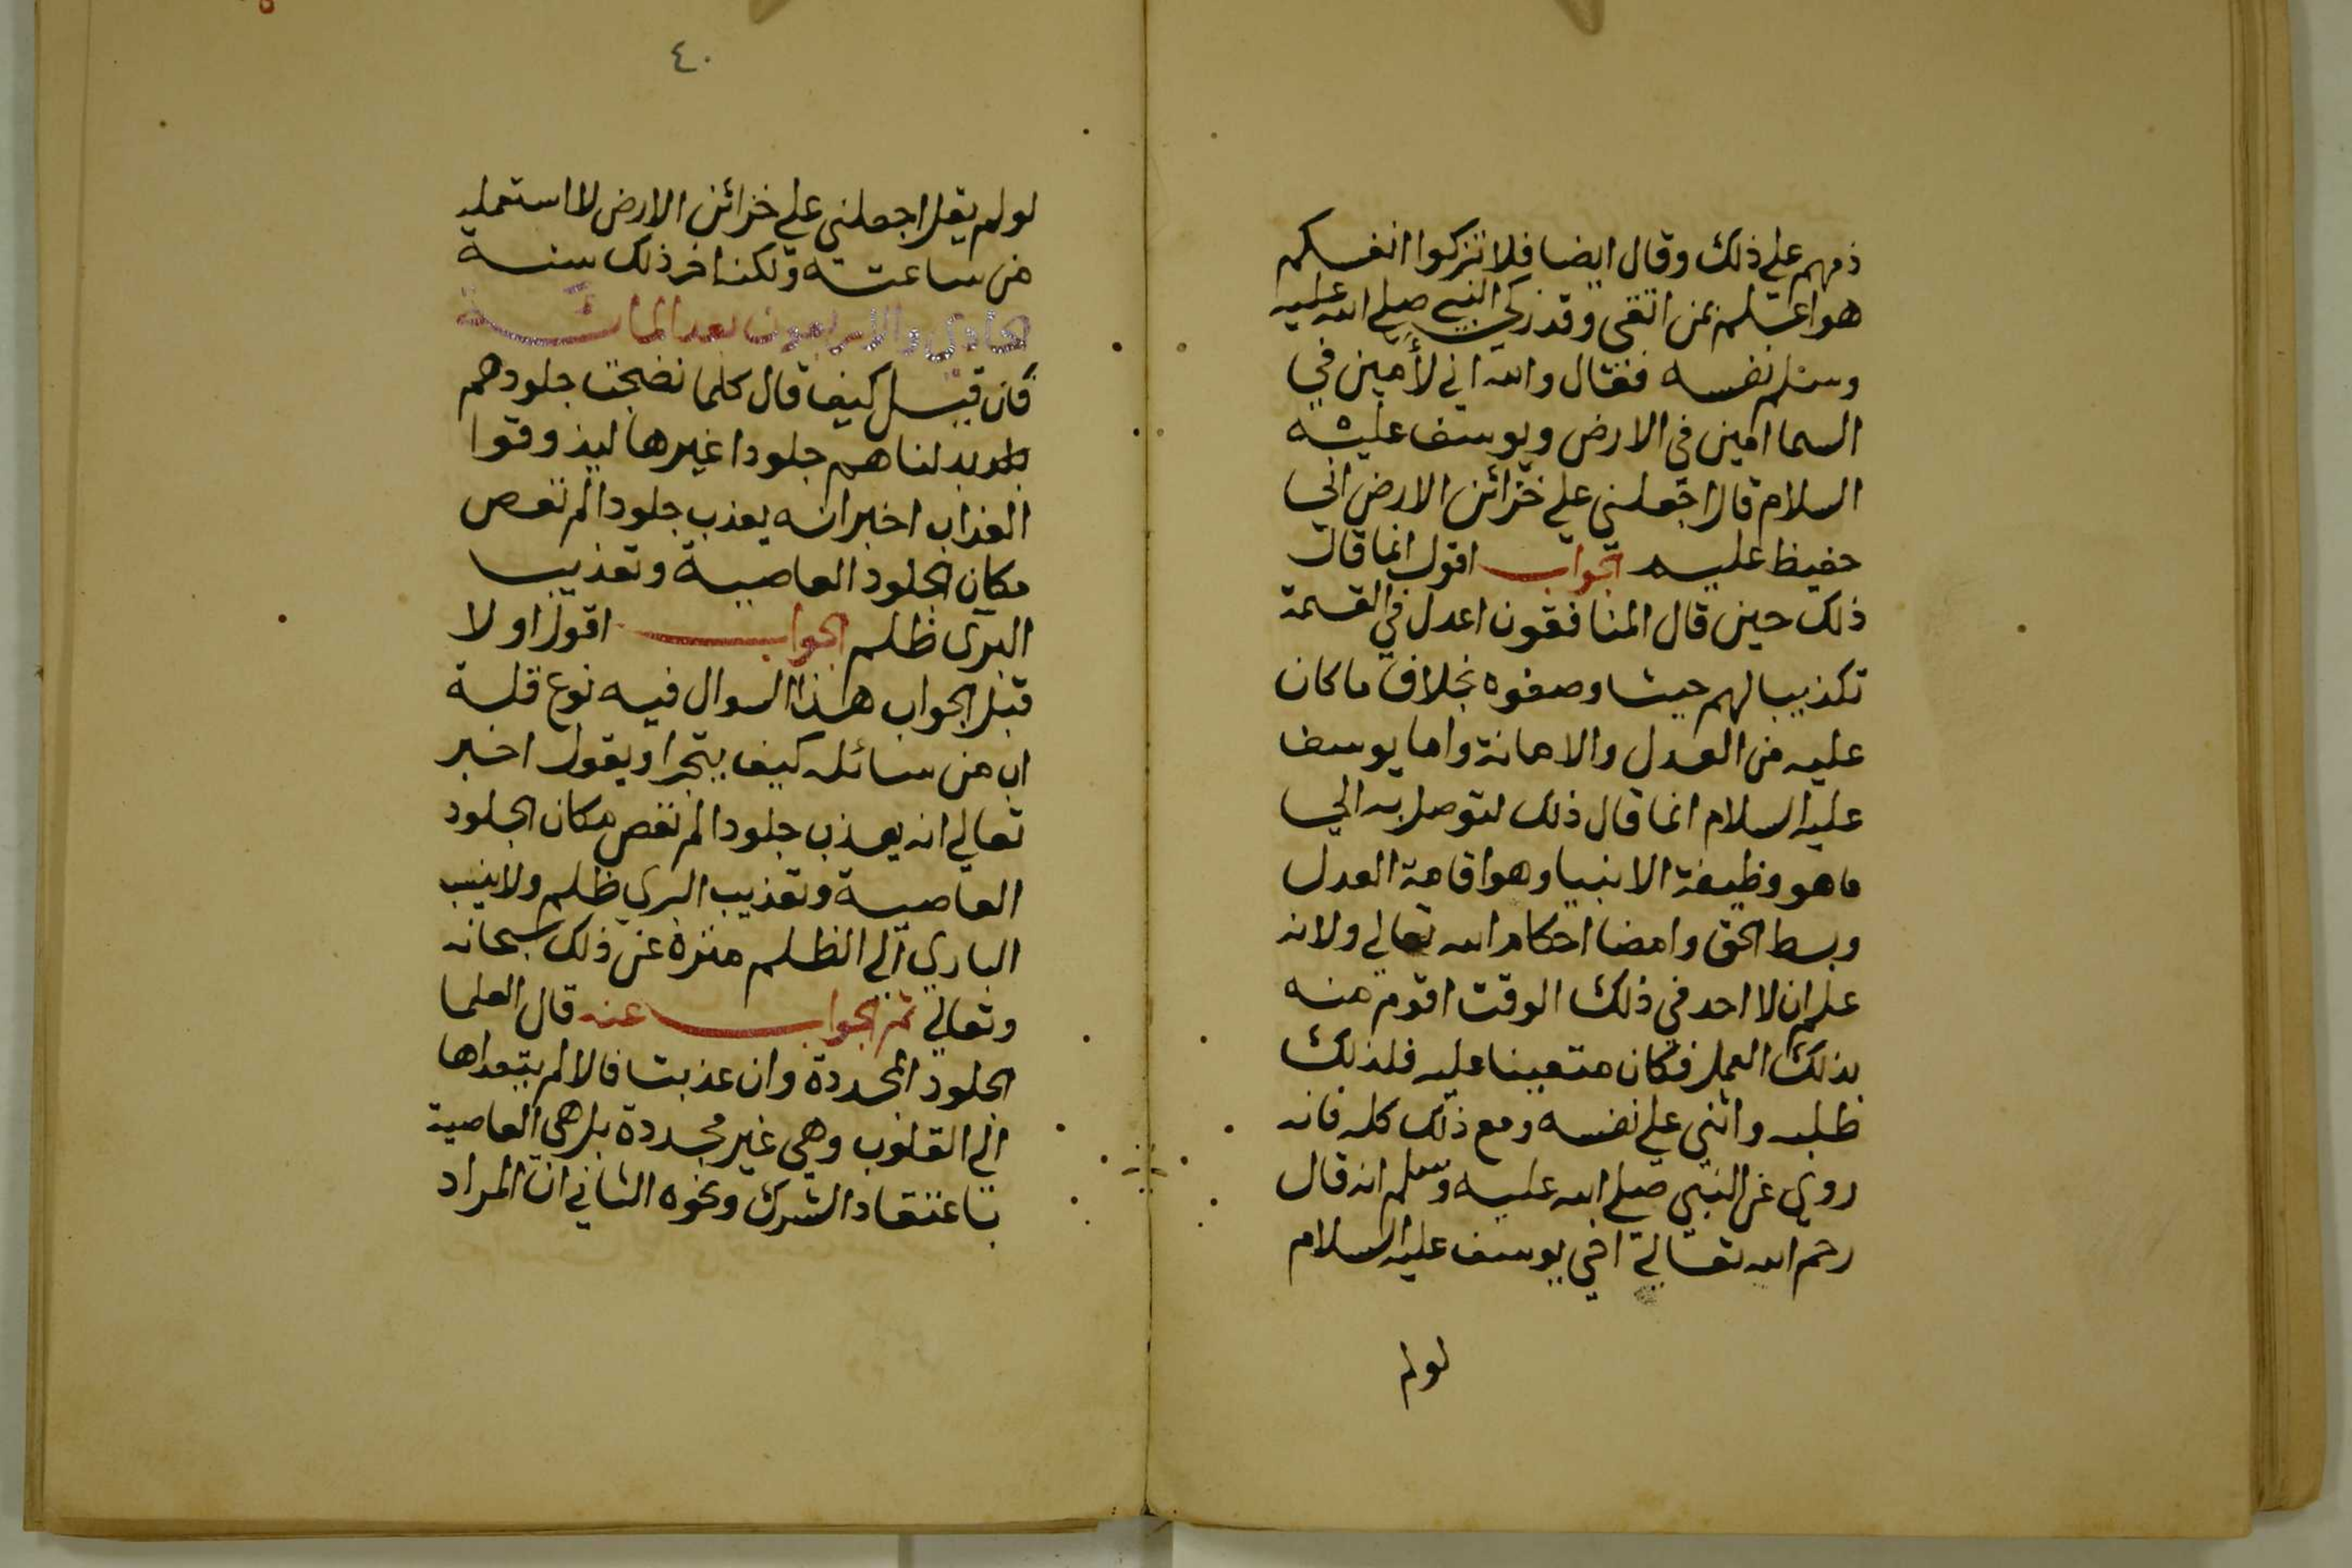 ذمهم على ذلك وقال ايضا فلا تزكوا انفسكم
هو اعلم بمن اتقى وقد زكى النبي صلى الله عليه
وسلم نفسه فقال والله اني لأمين في
السما امين في الارض ويوسف عليه
السلام قال اجعلني على خزائن الارض اني
حفيظ عليم الجواب اقول انما قال
ذلك حين قال المنافقون اعدل في القسمة
تكذيبا لهم حيث وصفوه بخلاف ما كان
عليه من العدل والامانة واما يوسف
عليه السلام انما قال ذلك لتوصل به الي
ما هو وظيفة الانبيا وهو اقامة العدل
وبسط الحق وامضا احكام الله تعالي ولانه
علم ان لا احد في ذلك الوقت اقوم منه
بذلك العمل فكان متعينا عليه فلذلك
طلبه واثني على نفسه ومع ذلك كله فانه
روي عن النبي صلى الله عليه وسلم انه قال
رحم الله تعالي اخي يوسف عليه السلام
لولم
٤٠
لولم يقل اجعلني على خزائن الارض لا استعمله
من ساعته ولكنه اخر ذلك سنة
الحادي والاربعون بعد المائة
فان قيل كيف قال كلما نضجت جلودهم
بدلناهم جلودا غيرها ليذوقوا
العذاب اخبر انه يعذب جلودا لم تعص
مكان الجلود العاصية وتعذيب
البرى ظلم الجواب اقول اولا
قبل الجواب هذا السوال فيه نوع قلة
اب من سائله كيف يتجرا ويقول اخبر
تعالي انه يعذب جلودا لم تعص مكان الجلود
العاصية وتعذيب البري ظلم ولا ينسب
الباري الي الظلم منزه عن ذلك سبحانه
وتعالي ثم الجواب عنه قال العلما
الجلود المجددة وان عذبت فالالم يتعداها
الي القلوب وهي غير مجددة بل هي العاصية
باعتقاد الشرك ونحوه الثاني ان المراد